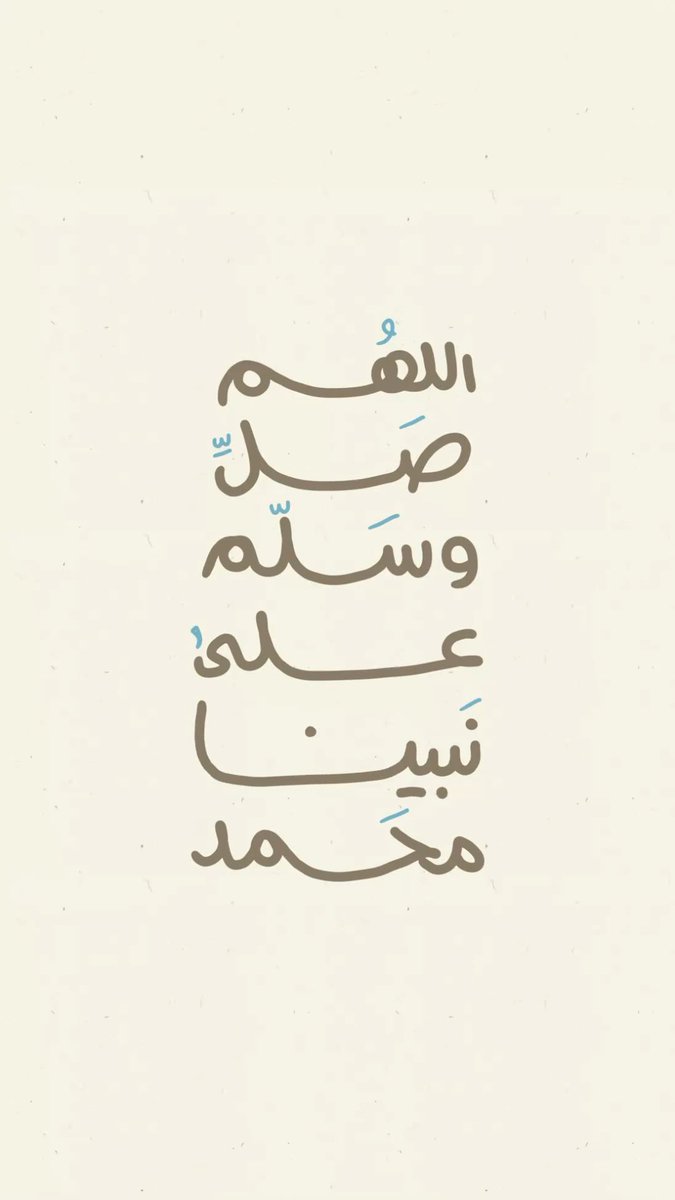 اللهُم
صَلِّ
وسَلّم
علىٰ
نَبينا
محَمد